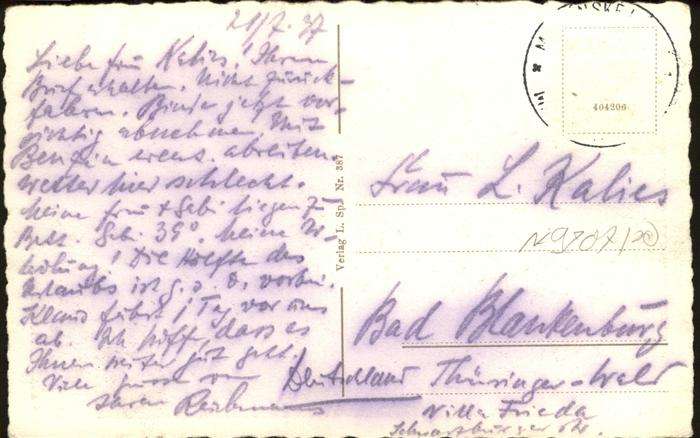 21/7. 37
Liebe Frau Kalies! Ihren
Brief erhalten. Nicht zurück-
fahren. Binde jetzt vor-
sichtig abnehmen. Mit
Benzin abreiben.
Wetter hier schlecht.
Meine Frau + Gabi liegen zu
Bett. Gabi 39°. Keine Er-
holung! Die Hälfte des
Urlaubs ist g. s. D. vorbei.
fährt 1 Tag vor uns
ab. Ich hoff, dass es
Ihnen weiter gut geht.
Viele Grüsse von
Verlag L. Sp. Nr. 387
404206
Frau L. Kalies
Bad Blankenburg
Deutschland Thüringer-Wald
Villa Frieda
Schwarzburger Str.